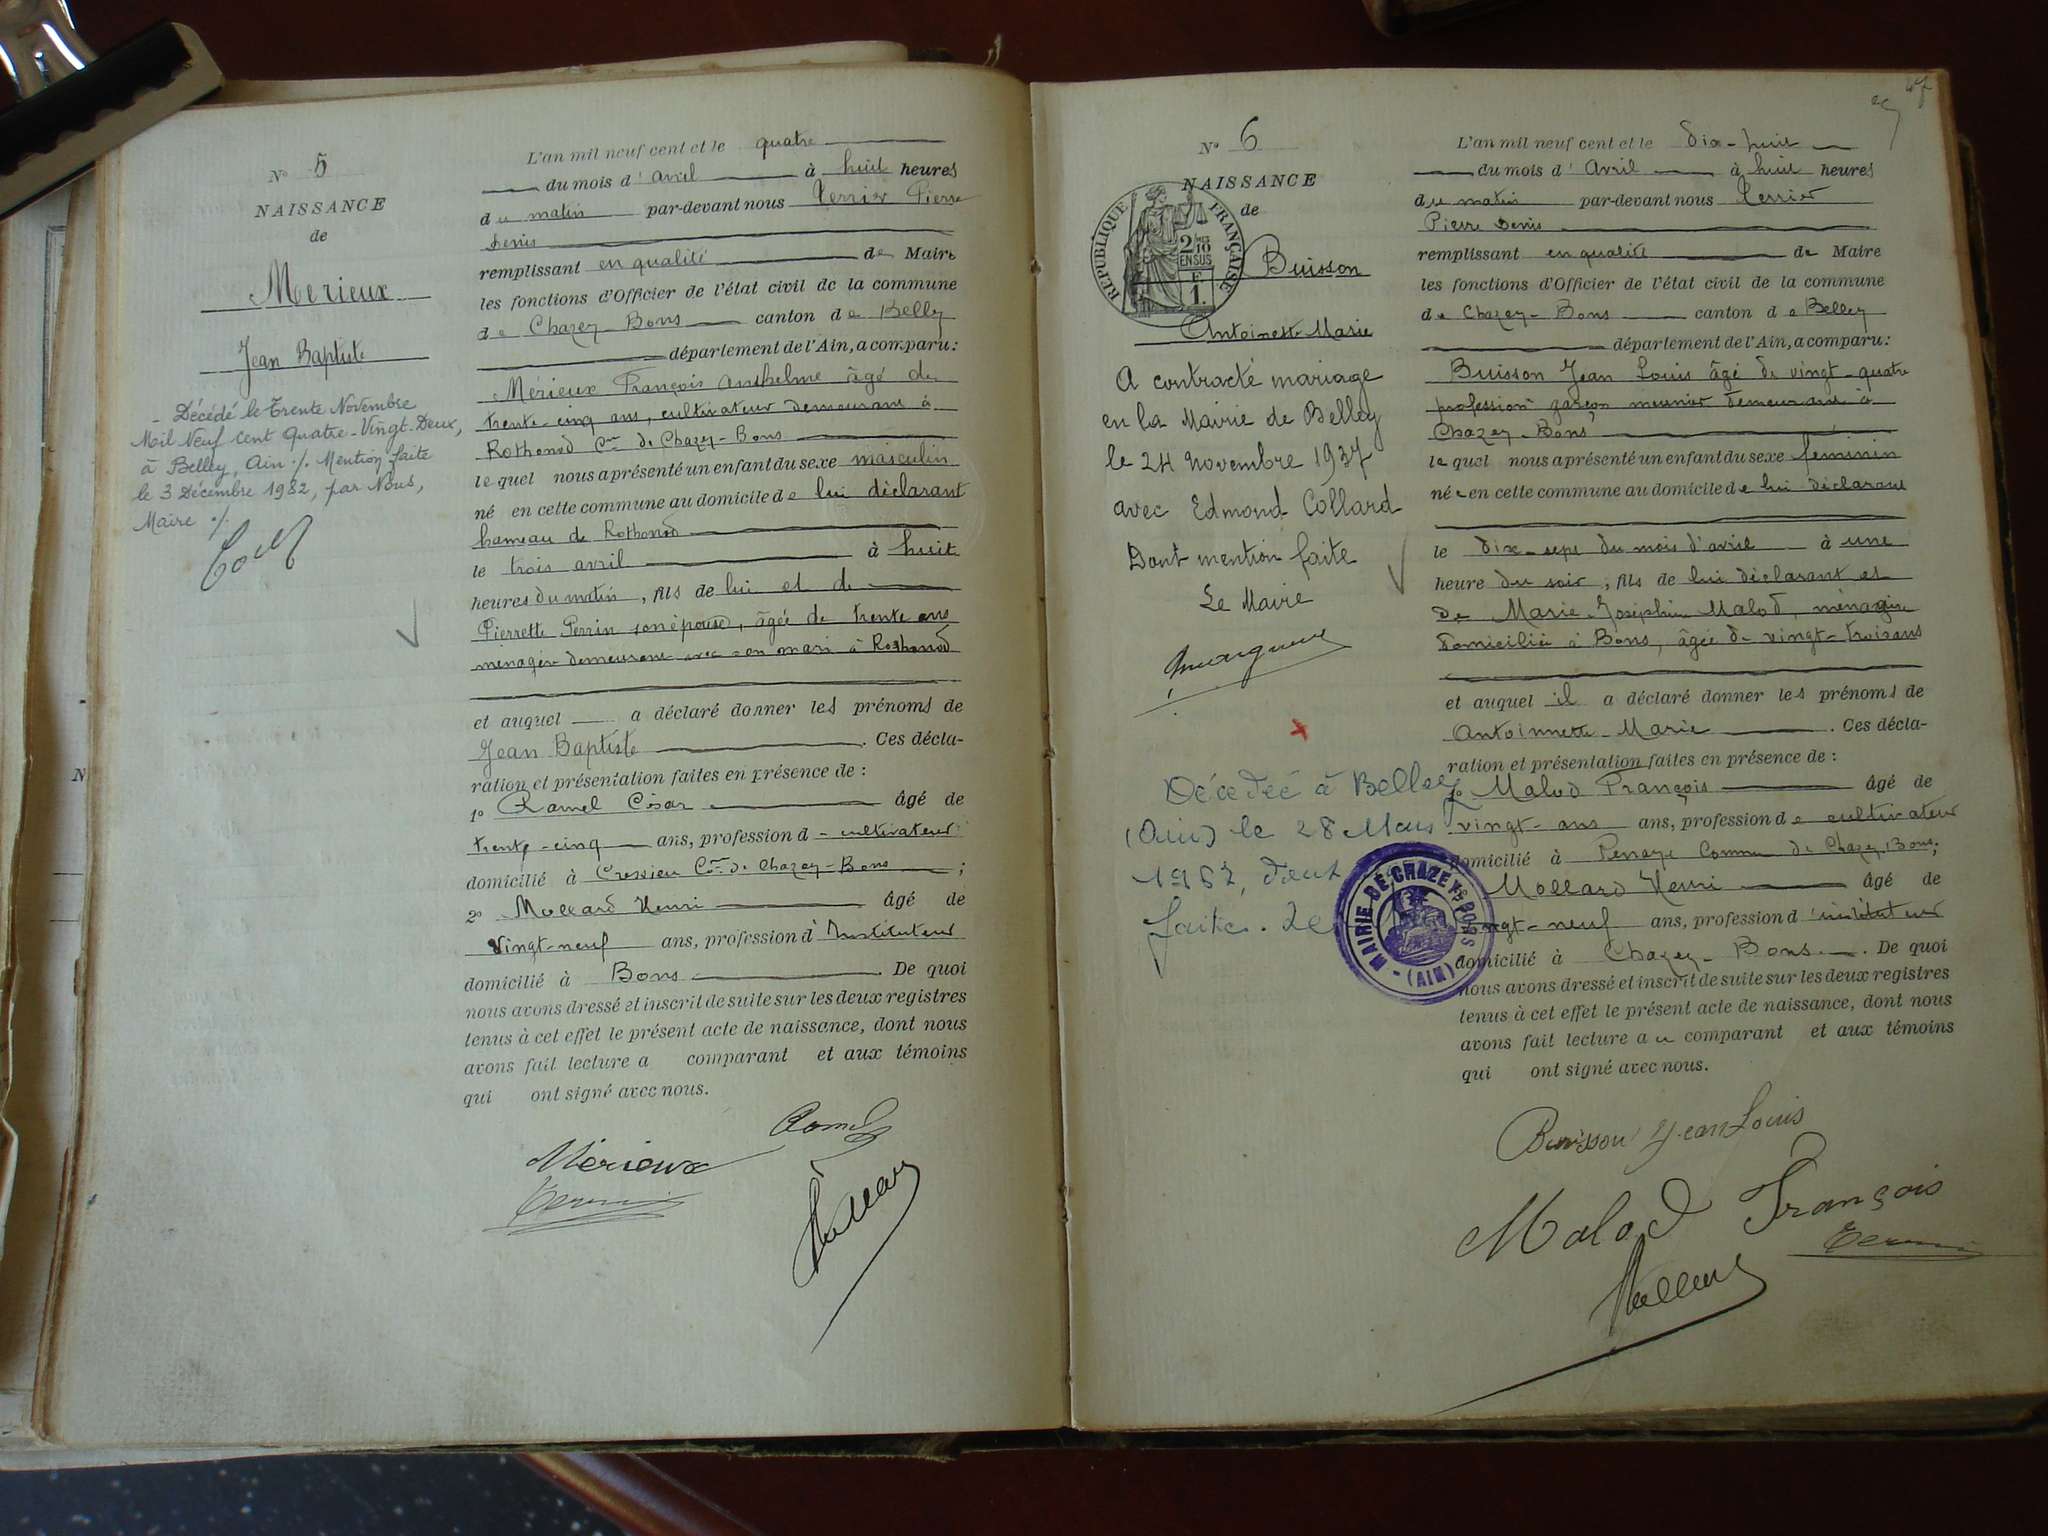 N° 5
NAISSANCE
de
Merieux
Jean Baptiste
- Décédé le Trente Novembre
Mil Neuf cent Quatre-Vingt-Deux,
à Belley, Ain ./. Mention faite
le 3 Décembre 1982, par Nous,
Maire ./.
L'an mil neuf cent et le quatre
du mois d'avril à huit heures
du matin par-devant nous Perrier Pierre
Denis
remplissant en qualité de Maire
les fonctions d'Officier de l'état civil de la commune
de Chazey-Bons canton de Belley
département de l'Ain, a comparu :
Mérieux François Anthelme âgé de
trente-cinq ans, cultivateur demeurant à
Rothonod Cne de Chazey-Bons
lequel nous a présenté un enfant du sexe masculin
né en cette commune au domicile de lui déclarant
hameau de Rothonod
le trois avril à huit
heures du matin, fils de lui et de
Pierrette Perrin son épouse, âgée de trente ans
ménagère demeurant avec son mari à Rothonod
et auquel a déclaré donner les prénoms de
Jean Baptiste. Ces décla-
ration et présentation faites en présence de :
1° Ramel César âgé de
trente-cinq ans, profession d cultivateur
domicilié à Cressieu Cne de Chazey-Bons ;
2° Mollard Henri âgé de
vingt-neuf ans, profession d'Instituteur
domicilié à Bons. De quoi
nous avons dressé et inscrit de suite sur les deux registres
tenus à cet effet le présent acte de naissance, dont nous
avons fait lecture a comparant et aux témoins
qui ont signé avec nous.
Ramel
Mérieux
N° 6
NAISSANCE
de
RÉPUBLIQUE FRANÇAISE
2/10
EN SUS
1.
Buisson
Antoinette Marie
A contracté mariage
en la Mairie de Belley
le 24 novembre 1937
avec Edmond Collard
Dont mention faite
Le Maire
Décédée à Belley
(Ain) le 28 Mars
dont
faite. Le
MAIRIE DE CHAZEY-BONS
(AIN)
L'an mil neuf cent et le dix-huit
du mois d'Avril à huit heures
du matin par-devant nous Perrier
Pierre Denis
remplissant en qualité de Maire
les fonctions d'Officier de l'état civil de la commune
de Chazey-Bons canton de Belley
département de l'Ain, a comparu :
Buisson Jean Louis âgé de vingt-quatre
profession garçon meunier demeurant à
Chazey-Bons
lequel nous a présenté un enfant du sexe féminin
née en cette commune au domicile de lui déclarant
le dix-sept du mois d'avril à une
heure du soir, fils de lui déclarant et
de Marie-Joséphine Malod, ménagère
domiciliée à Bons, âgée de vingt-trois ans
et auquel il a déclaré donner les prénoms de
Antoinnette-Marie. Ces décla-
ration et présentation faites en présence de :
1° Malod François âgé de
vingt-ans ans, profession de cultivateur
domicilié à Commune de Chazey-Bons ;
Mollard Henri âgé de
vingt-neuf ans, profession d'instituteur
domicilié à Chazey-Bons. De quoi
nous avons dressé et inscrit de suite sur les deux registres
tenus à cet effet le présent acte de naissance, dont nous
avons fait lecture au comparant et aux témoins
qui ont signé avec nous.
Buisson Jean Louis
Malod François